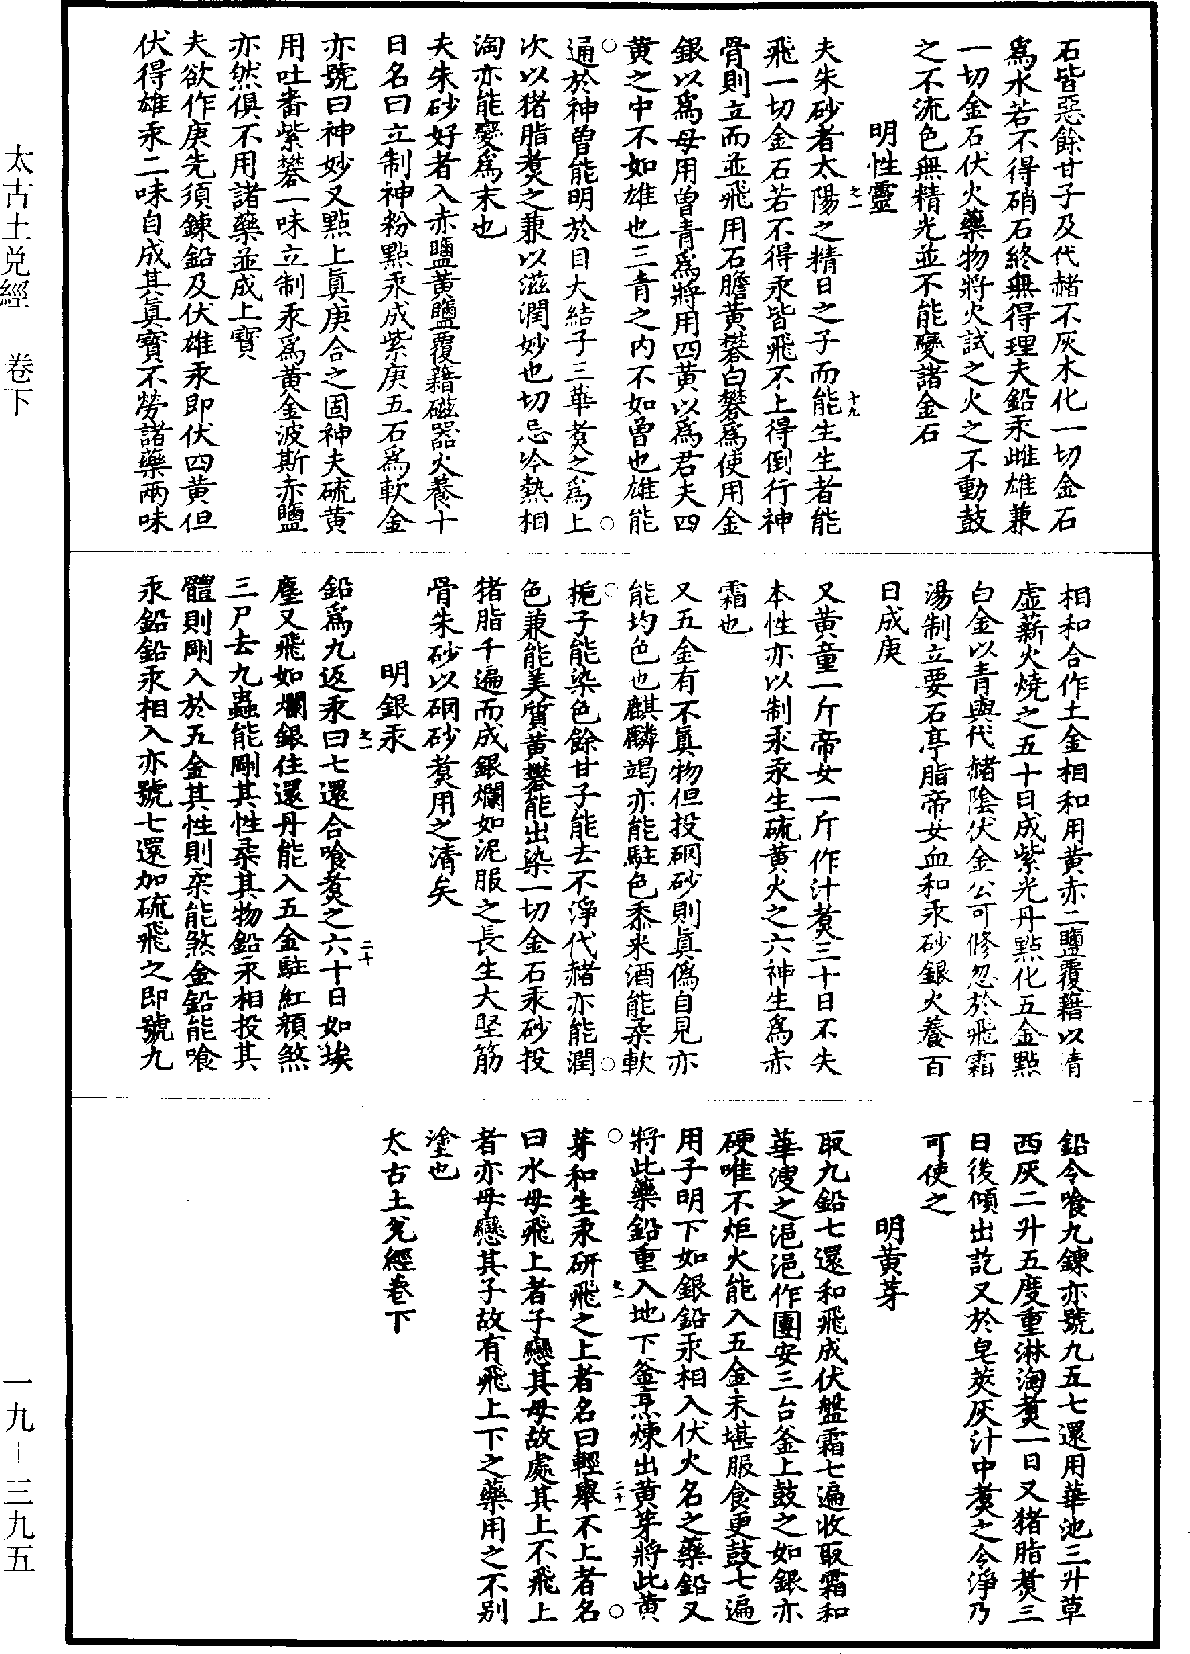 石皆惡餘甘子及代赭不灰木化一切金石
爲水若不得硝石終無得理夫鉛汞雌雄兼
一切金石伏火藥物將火試之火之不動鼓
之不流色無精光並不能變諸金石
明性靈
夫朱砂者太陽之精日之子而能生生者能
飛一切金石若不得汞皆飛不上得倒行神
骨則立而並飛用石膽黃礬白礬爲使用金
銀以爲母用曾青爲將用四黃以爲君夫四
黃之中不如雄也三青之内不如曾也雄能
通於神曾能明於目大結子三華煑之爲上
次以猪脂煑之兼以滋潤妙也切忌冷熱相
淘亦能變爲末也
夫朱砂好者入赤鹽黃鹽覆藉磁器火養十
日名曰立制神粉點汞成紫庚五石爲軟金
亦號曰神妙又點上眞庚合之固神夫硫黃
用吐蕃紫礬一味立制汞爲黃金波斯赤鹽
亦然俱不用諸藥並成上寶
夫欲作庚先須鍊鉛及伏雄汞即伏四黃但
伏得雄汞二味自成其眞寶不勞諸藥兩味
相和合作土金相和用黃赤二鹽覆藉以清
虛薪火燒之五十日成紫光丹點化五金點
白金以青與代赭陰伏金公可修忽於飛霜
湯制立要石亭脂帝女血和汞砂銀火養百
日成庚
又黃童一斤帝女一斤作汁煑三十日不失
本性亦以制汞汞生硫黃火之六神生爲赤
霜也
又五金有不眞物但投硇砂則眞僞自見亦
能均色也麒麟竭亦能駐色黍米酒能柔軟
梔子能染色餘甘子能去不淨代赭亦能潤
色兼能美質黃礬能出染一切金石汞砂投
猪脂千遍而成銀爛如泥服之長生大堅筋
骨朱砂以硇砂煑用之清矣
明銀汞
鉛爲九返汞曰七還合喰煑之六十日如埃
塵又飛如爛銀住還丹能入五金駐紅顔煞
三尸去九蟲能剛其性柔其物鉛汞相投其
體則剛入於五金其性則柔能煞金鉛能喰
汞鉛鉛汞相入亦號七還加硫飛之即號九
鉛令喰九鍊亦號九五七還用華池三升草
西灰二升五度重淋淘煑一日又猪脂煑三
日後傾出訖又於皂莢灰汁中煑之令淨乃
可使之
明黃芽
取九鉛七還和飛成伏盤霜七遍收取霜和
華溲之浥浥作團安三台釜上鼓之如銀亦
硬唯不炬火能入五金未堪服食更鼓七遍
用子明下如銀鉛汞相入伏火名之藥鉛又
將此藥鉛重入地下釜烹煉出黃芽將此黃
芽和生汞研飛之上者名曰輕舉不上者名
曰水母飛上者子戀其母故處其上不飛上
者亦母戀其子故有飛上下之藥用之不別
塗也
太古土兌經卷下
之一
十九
之一
二十
之一
二十一
太古土兌經 卷下
一九－三九五